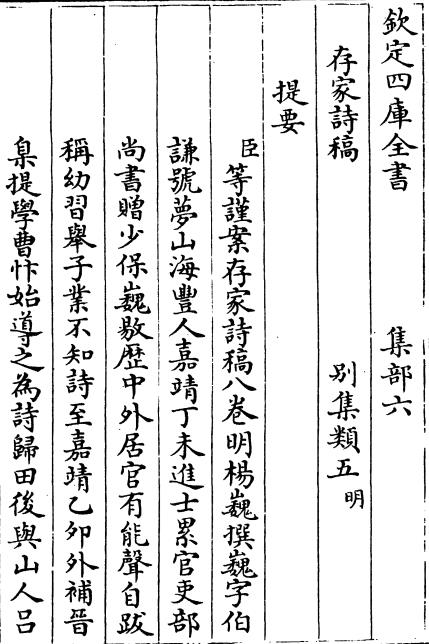 欽定四庫全書　集部六
存家詩稿　別集類五明
提要
臣等謹案存家詩稿八卷明楊巍撰巍字伯
謙號夢山海豐人嘉靖丁未進士累官吏部
尚書贈少保巍敭歴中外居官有能聲自跋
稱幼習舉子業不知詩至嘉靖乙夘外補晉
臬提學曹忭始導之為詩歸田後與山人吕